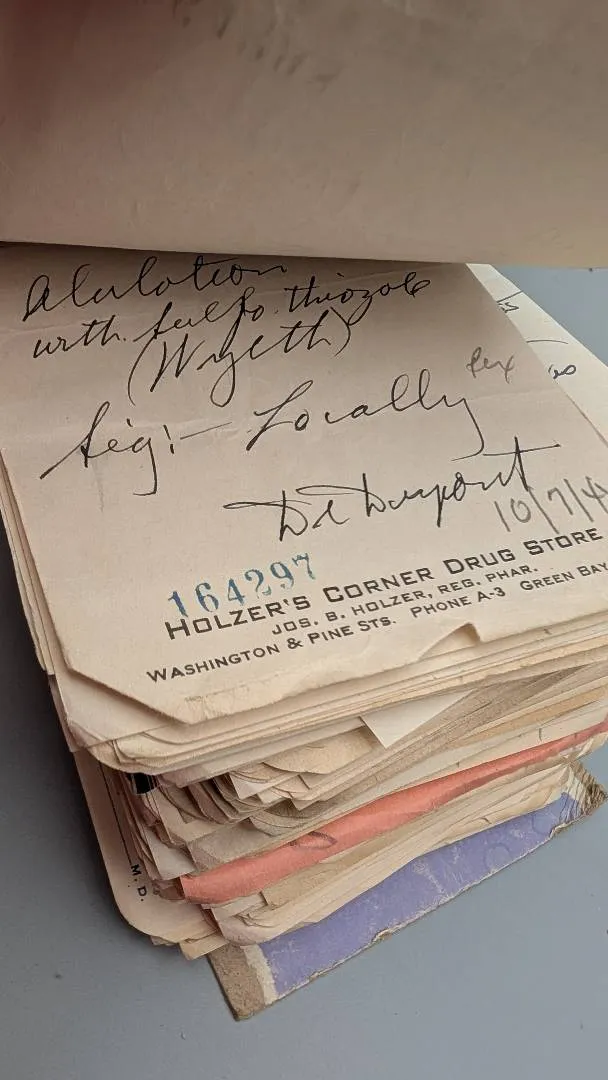 Alulotion
with. sulfo. thiozole
(Wyeth)
Sig:— Locally
Dr Dupont
10/7/4
164297
HOLZER'S CORNER DRUG STORE
JOS. B. HOLZER, REG. PHAR.
WASHINGTON & PINE STS. PHONE A-3 GREEN BAY
M. D.